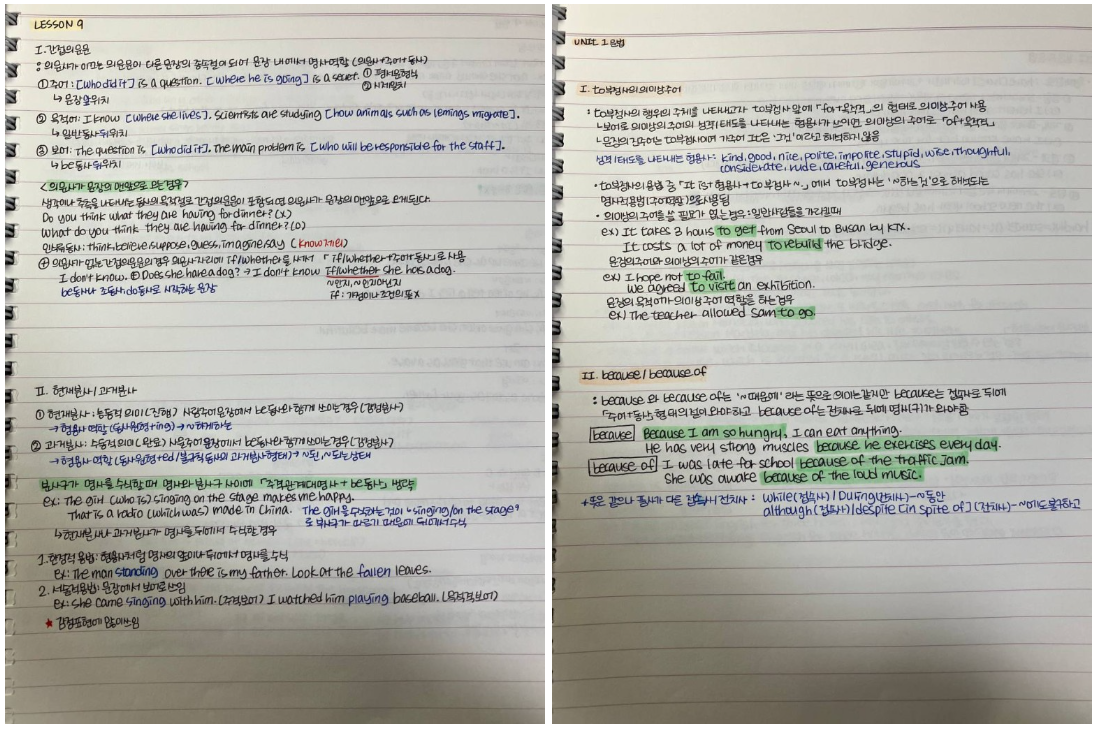 LESSON 9
I. 간접의문문
: 의문사가 이끄는 의문문이 다른 문장의 종속절이 되어 문장 내에서 명사역할 (의문사+주어+동사)
① 주어: [who did it] is a question. [where he is going] is a secret. ① 평서문형식
↳ 문장앞위치 ② 시제일치
② 목적어: I know [where she lives]. Scientists are studying [how animals such as lemings migrate].
↳ 일반동사뒤위치
③ 보어: The question is [who did it]. The main problem is [who will be responsible for the staff].
↳ be동사뒤위치
<의문사가 문장의 맨앞으로 오는경우>
생각이나 추측을 나타내는 동사의 목적절로 간접의문문이 포함되면 의문사가 문장의 맨앞으로 오게된다.
Do you think what they are having for dinner? (x)
What do you think they are having for dinner? (o)
think, believe, suppose, guess, imagine, say (know제외)
⊕ 의문사가 없는 간접의문문의 경우 의문사자리에 if/whether를 써서 「if/whether+주어+동사」로 사용
I don't know. ⊕ Does she have a dog? → I don't know if/whether she has a dog.
be동사나 조동사, do동사로 시작하는 문장 ~인지, ~인지아닌지
if: 가정이나 조건의 뜻x
II. 현재분사/과거분사
① 현재분사: 능동적의미(진행) 사람주어문장에서 be동사와함께 쓰이는경우(감정분사)
→ 형용사 역할 (동사원형+ing) → ~하게하는
② 과거분사: 수동적의미(완료) 사물주어문장에서 be동사와함께쓰이는경우(감정분사)
→ 형용사 역할 (동사원형+ed/불규칙동사의 과거분사형태) → ~된, ~되는상태
분사구가 명사를 수식할 때 명사와 분사구 사이에 「주격관계대명사+be동사」 생략
ex: The girl (who is) singing on the stage makes me happy.
That is a radio (which was) made in China. The girl을 수식하는것이 'singing/on the stage'
로 분사구가 따르기 때문에 뒤에서수식
↳ 현재분사나 과거분사가 명사를 뒤에서 수식한 경우
1. 한정적 용법: 형용사처럼 명사의 앞이나 뒤에서 명사를 수식
ex: The man standing over there is my father. Look at the fallen leaves.
2. 서술적용법: 문장에서 보어로쓰임
ex: She came singing with him. (주격보어) I watched him playing baseball. (목적격보어)
★ 감정표현에 많이쓰임
UNIT 1 문법
I. to부정사의의미상주어
: to부정사의 행위의 주체를 나타내고자 to부정사 앞에 「for+목적격」의 형태로 의미상주어 사용
↳보어로 의미상의 주어의 성격/태도를 나타내는 형용사가 쓰이면, 의미상의 주어로 「of+목적격」
↳문장의 진주어는 to부정사이며 가주어 It은 '그것'이라고 해석하지 않음
성격/태도를 나타내는 형용사: kind, good, nice, polite, impolite, stupid, wise, thoughful,
considerate, rude, careful, generous
• to부정사의 용법 중 「It is+형용사+to부정사~」에서 to부정사는 '~하는것'으로 해석되는
명사적용법(주어역할)으로사용됨
• 의미상의 주어를 쓸 필요가 없는경우: 일반사람들을 가리킬때
ex) It takes 3 hours to get from Seoul to Busan by KTX.
It costs a lot of money to rebuild the bridge.
문장의주어와 의미상의주어가 같은경우
ex) I hope not to fail.
We agreed to visit an exhibition.
문장의 목적어가의미상주어 역할을 하는경우
ex) The teacher allowed Sam to go.
II. because / because of
: because 와 because of는 '~때문에' 라는 뜻으로 의미는같지만 because는 접속사로 뒤에
「주어+동사」형태의절이 와야하고 because of는 전치사로 뒤에 명사(구)가 와야함
because Because I am so hungry, I can eat anything.
He has very strong muscles because he exercises every day.
because of I was late for school because of the traffic jam.
She was awake because of the loud music.
*뜻은 같으나 품사가 다른 접속사/전치사: while(접속사)/During(전치사)-~동안
although(접속사)/despite [in spite of](전치사)-~에도불구하고